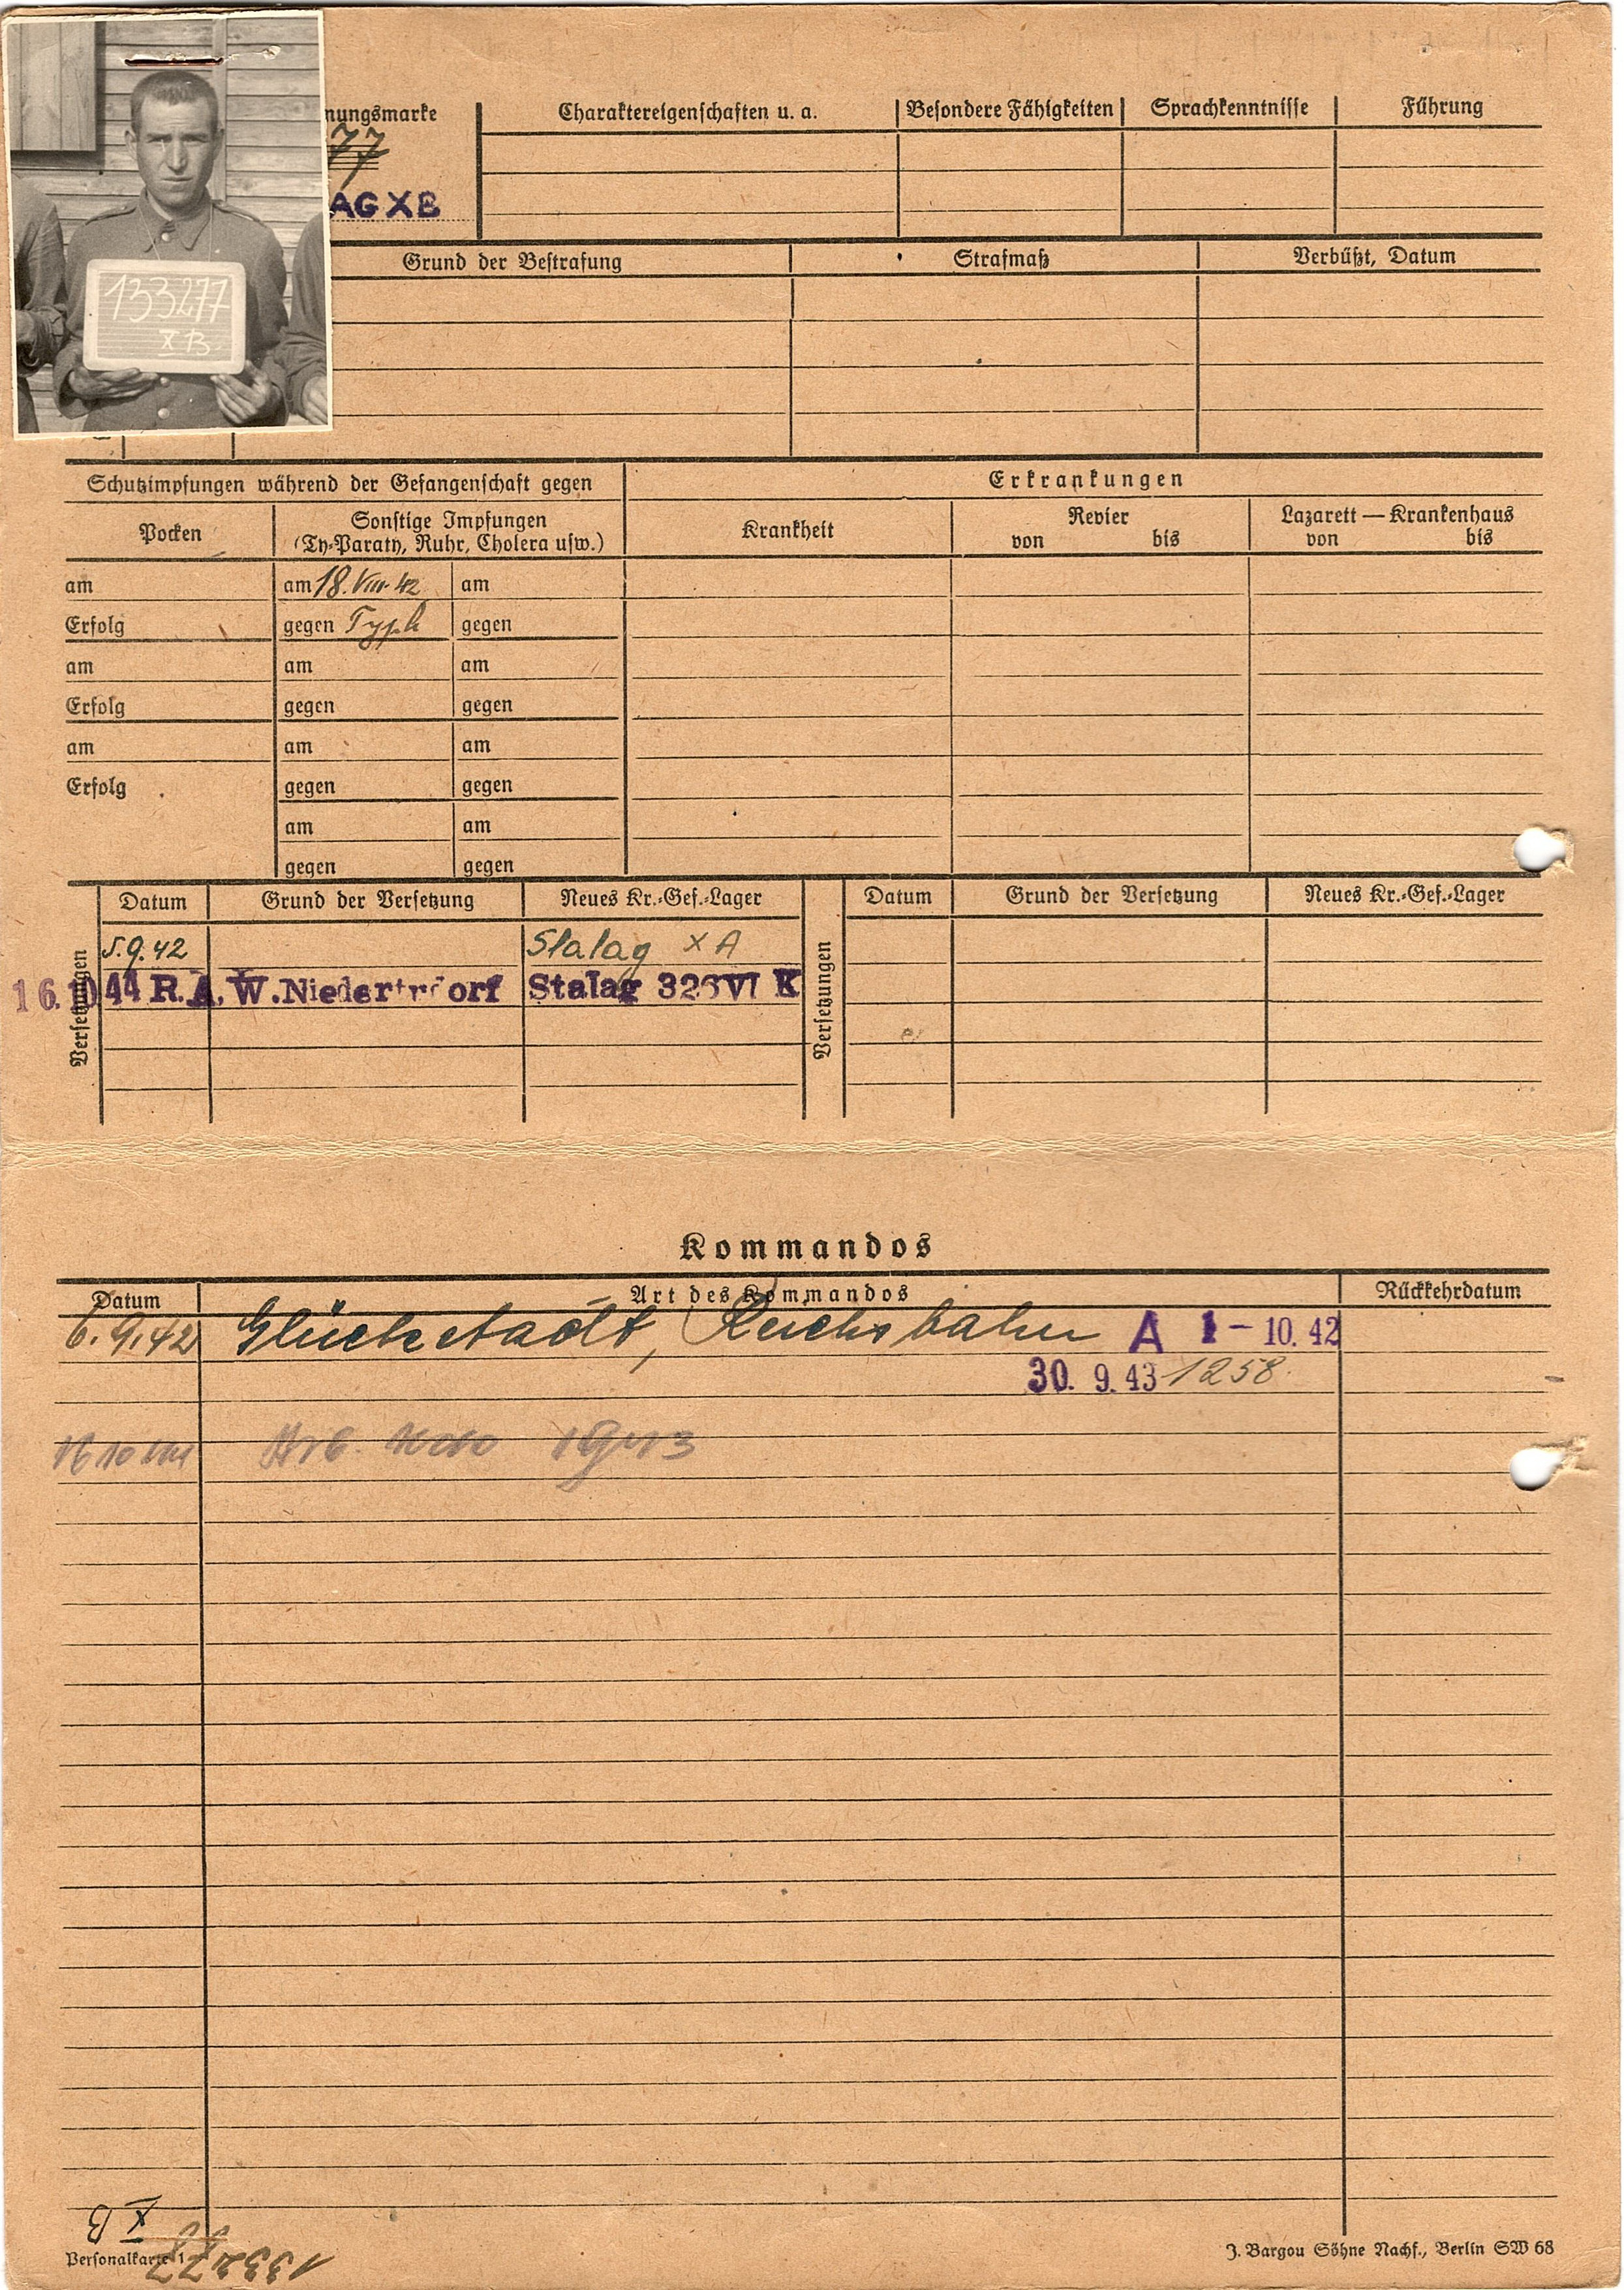 nungsmarke Charaktereigenschaften u. a. Besondere Fähigkeiten Sprachkenntnisse Führung
77
AG X B
133277
X B
Grund der Bestrafung Strafmaß Verbüßt, Datum
Schutzimpfungen während der Gefangenschaft gegen Erkrankungen
Pocken Sonstige Impfungen Krankheit Revier Lazarett — Krankenhaus
(Ty-Paraty, Ruhr, Cholera usw.) von bis von bis
am am 18. VIII. 42 am
Erfolg gegen Typh gegen
am am am
Erfolg gegen gegen
am am am
Erfolg gegen gegen
am am
gegen gegen
Versetzungen Datum Grund der Versetzung Neues Kr.-Gef.-Lager Versetzungen Datum Grund der Versetzung Neues Kr.-Gef.-Lager
5.9.42 Stalag X A
16.10 44 R.A.W. Stalag 326 VI K
Kommandos
Datum Art des Kommandos Rückkehrdatum
6.9.42 Glückstadt, Reichsbahn A 1 - 10. 42
30. 9. 43 1258
1943
X B
133277
Personalkarte 1 J. Bargou Söhne Nachf., Berlin SW 68